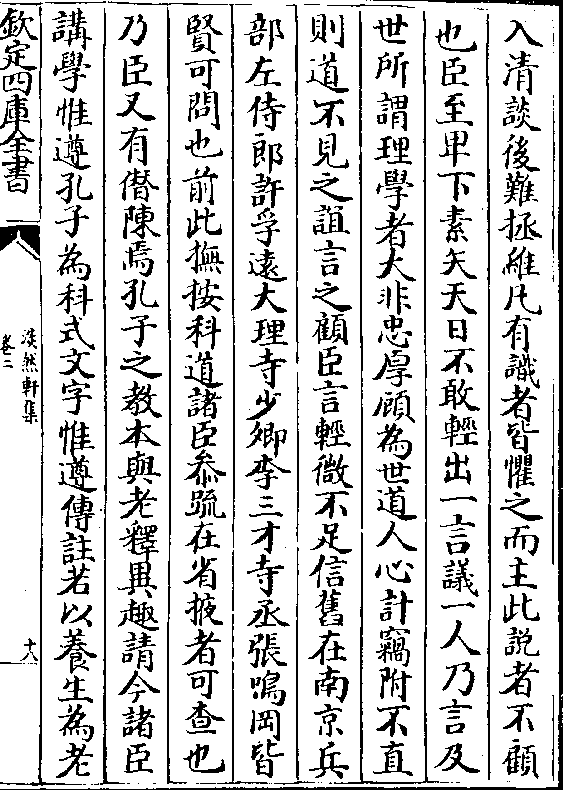 入清談後難拯維凡有識者皆懼之而主此説者不顧
也臣至卑下素矢天日不敢輕出一言議一人乃言及
世所謂理學者大非忠厚顧為世道人心計竊附不直
則道不見之誼言之顧臣言輕微不足信舊在南京兵
部左侍郎許孚遠大理寺少卿李三才寺丞張鳴岡皆
賢可問也前此撫按科道諸臣叅疏在省掖者可查也
乃臣又有僭陳焉孔子之教本與老釋異趣請今諸臣
講學惟遵孔子為科式文字惟遵傳註若以養生為老
欽定四庫全書
淡然軒集
卷二
十八